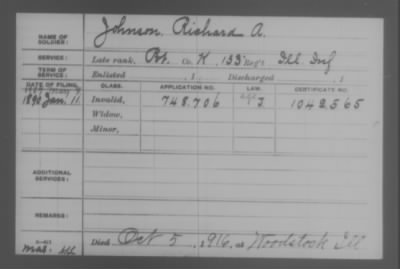 NAME OF SOLDIER: Johnson, Richard A.
SERVICE: Late rank, Pvt. Co. K, 153 Reg't Ill. Inf
TERM OF SERVICE: Enlisted , 1 , Discharged , 1
DATE OF FILING. CLASS. APPLICATION NO. LAW. CERTIFICATE NO.
1890 Jan. 11. Invalid, 748.706 J 1042565
Widow,
Minor,
ADDITIONAL SERVICES:
REMARKS:
Died Oct 5, 1916, at Woodstock Ill